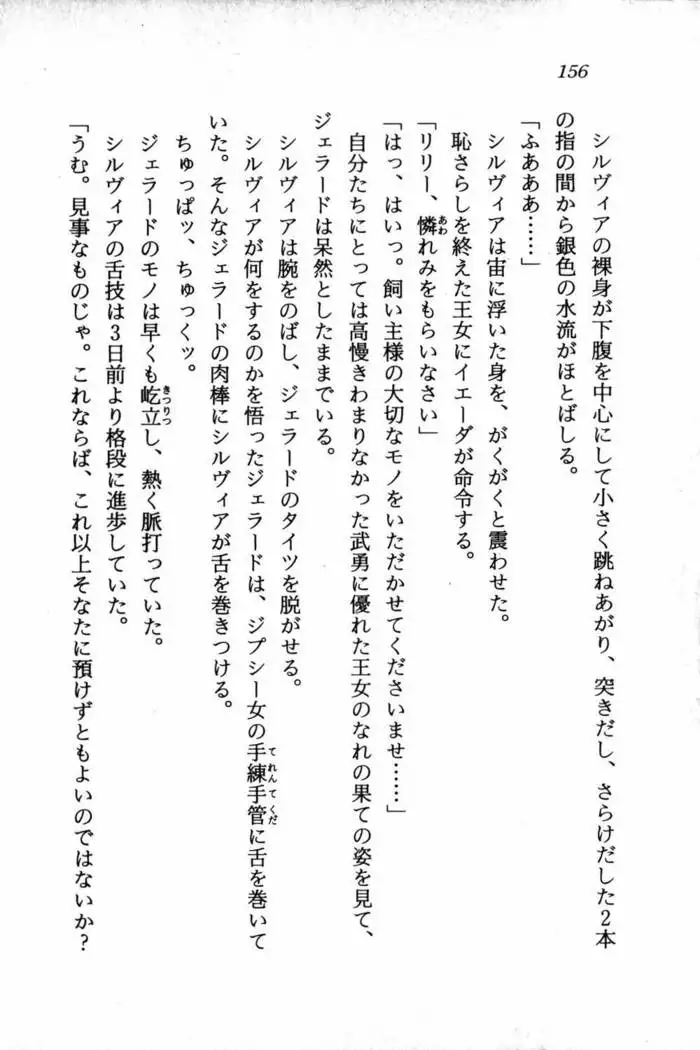 156
シルヴィアの裸身が下腹を中心にして小さく跳ねあがり、突きだし、さらけだした2本
の指の間から銀色の水流がほとばしる。
「ふあああ……」
シルヴィアは宙に浮いた身を、がくがくと震わせた。
恥さらしを終えた王女にイエーダが命令する。
「リリー、憐れみをもらいなさい」
「はっ、はいっ。飼い主様の大切なモノをいただかせてくださいませ……」
自分たちにとっては高慢きわまりなかった武勇に優れた王女のなれの果ての姿を見て、
ジェラードは呆然としたままでいる。
シルヴィアは腕をのばし、ジェラードのタイツを脱がせる。
シルヴィアが何をするのかを悟ったジェラードは、ジプシー女の手練手管に舌を巻いて
いた。そんなジェラードの肉棒にシルヴィアが舌を巻きつける。
ちゅっぱッ、ちゅっくッ。
ジェラードのモノは早くも屹立し、熱く脈打っていた。
シルヴィアの舌技は3日前より格段に進歩していた。
「うむ。見事なものじゃ。これならば、これ以上そなたに預けずともよいのではないか?